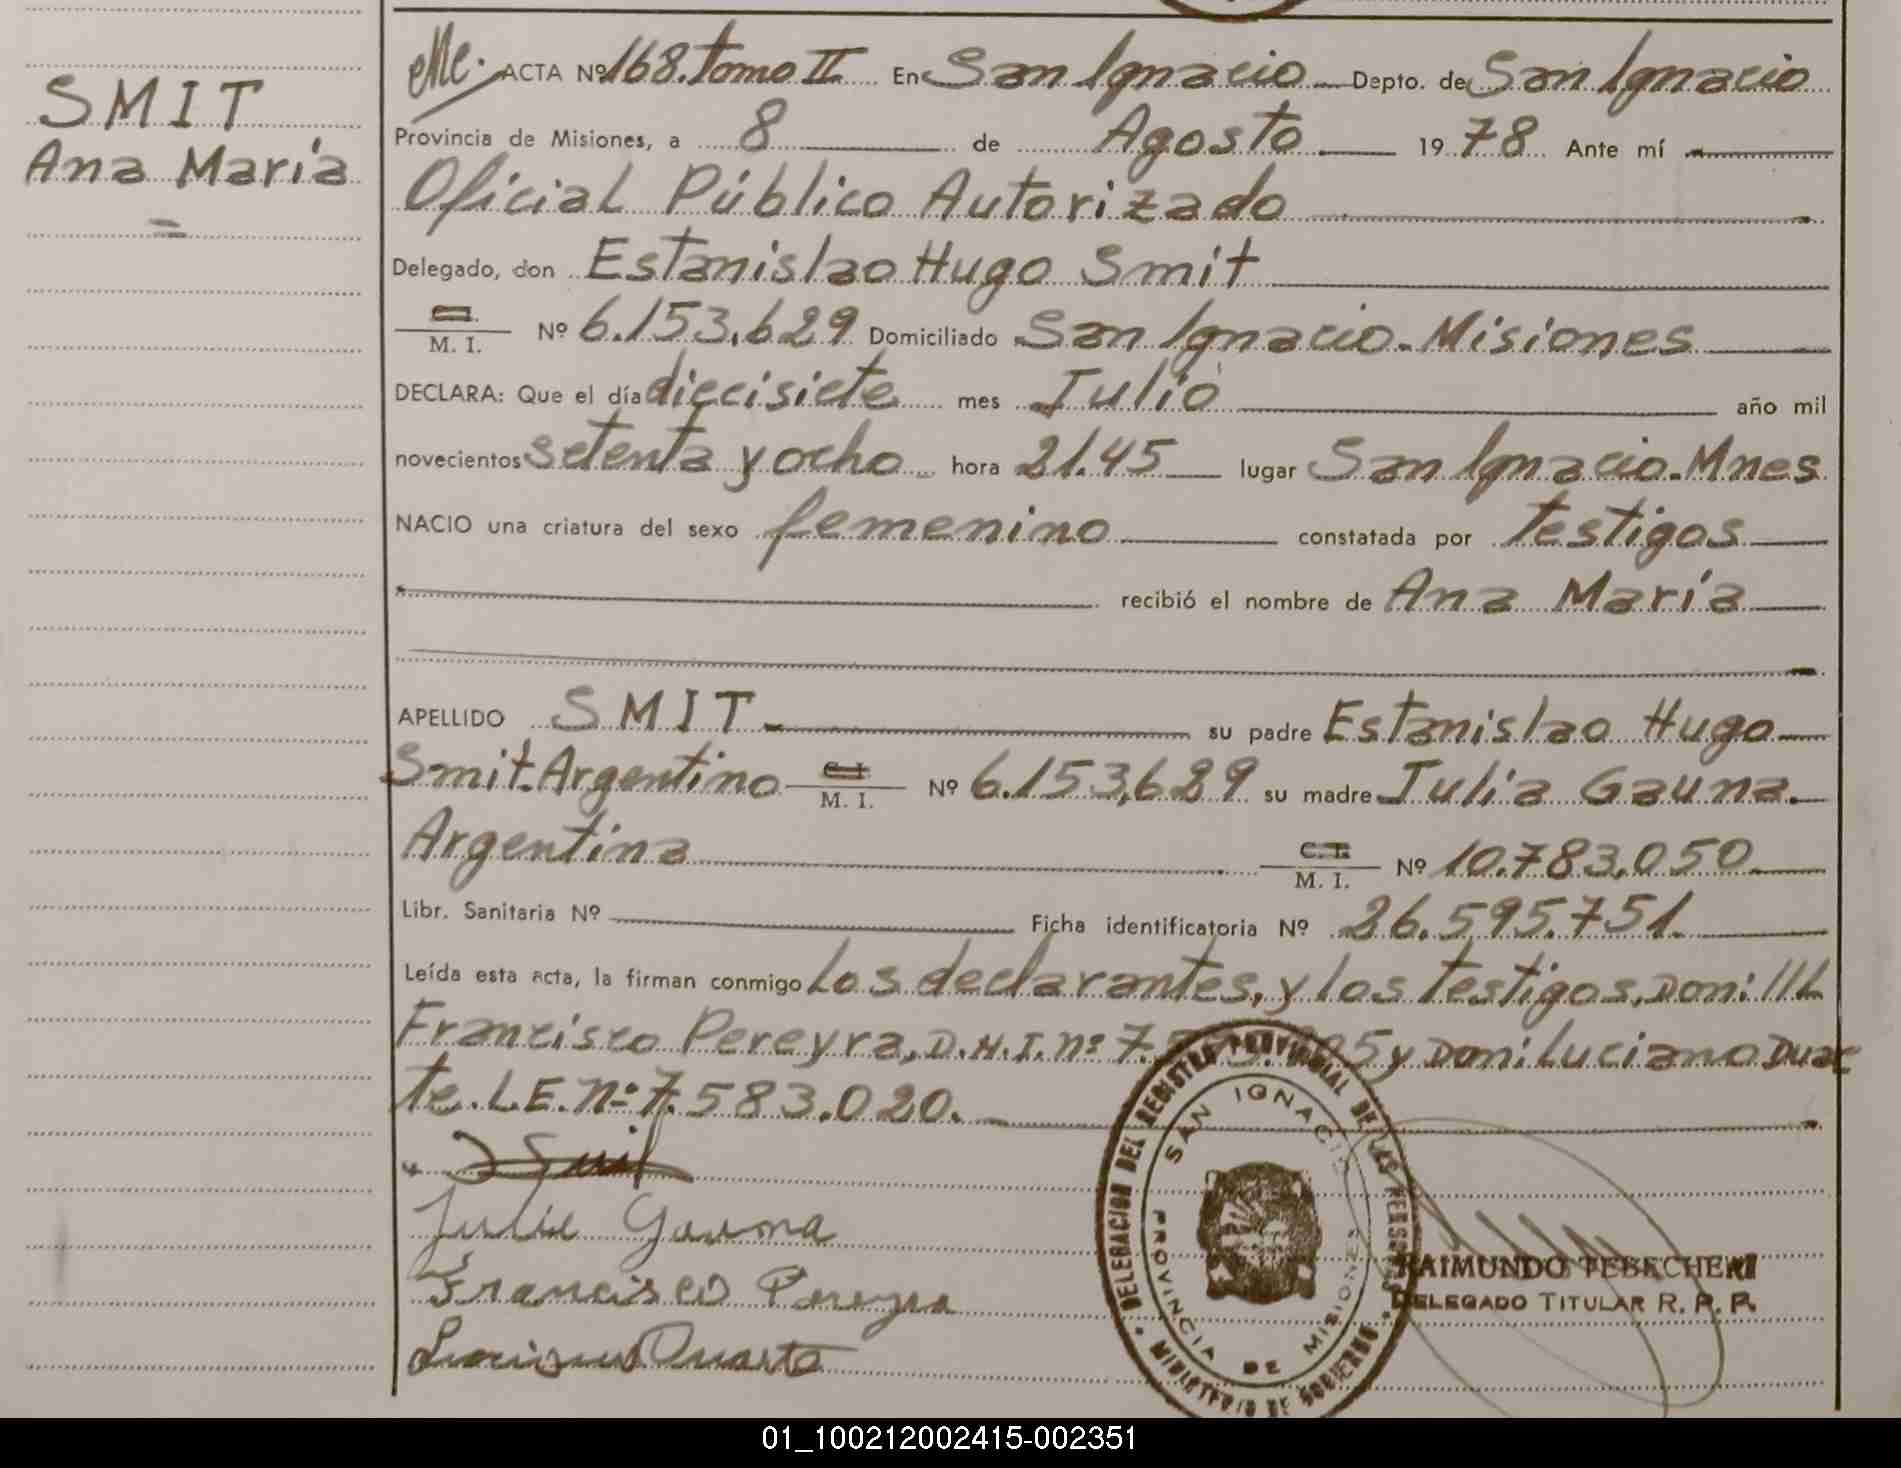 SMIT
Ana María
ACTA Nº 168. Tomo II En San Ignacio Depto. de San Ignacio
Provincia de Misiones, a 8 de Agosto 1978 Ante mí
Oficial Público Autorizado
Delegado, don Estanislao Hugo Smit
M. I. Nº 6.153.629 Domiciliado San Ignacio. Misiones
DECLARA: Que el día diecisiete mes Julio año mil
novecientos setenta y ocho hora 21.45 lugar San Ignacio. Mnes
NACIO una criatura del sexo femenino constatada por testigos
recibió el nombre de Ana María
APELLIDO SMIT su padre Estanislao Hugo
Smit. Argentino C. I. M. I. Nº 6.153.629 su madre Julia Gauna.
Argentina C. I. M. I. Nº 10.783.050
Libr. Sanitaria Nº Ficha identificatoria Nº 26.595.751.
Leída esta acta, la firman conmigo Los declarantes, y los testigos, Don:
Francisco Pereyra, D.N.I. nº 7. y Don: Luciano Duar
te. L.E. nº 7.583.020.
Smit
Julia Gauna
Francisco Pereyra
Luciano Duarte
DELEGACION DEL REGISTRO PROVINCIAL DE LAS PERSONAS
SAN IGNACIO
PROVINCIA DE MISIONES
MINISTERIO DE GOBIERNO
RAIMUNDO
DELEGADO TITULAR R. P. P.
01_100212002415-002351